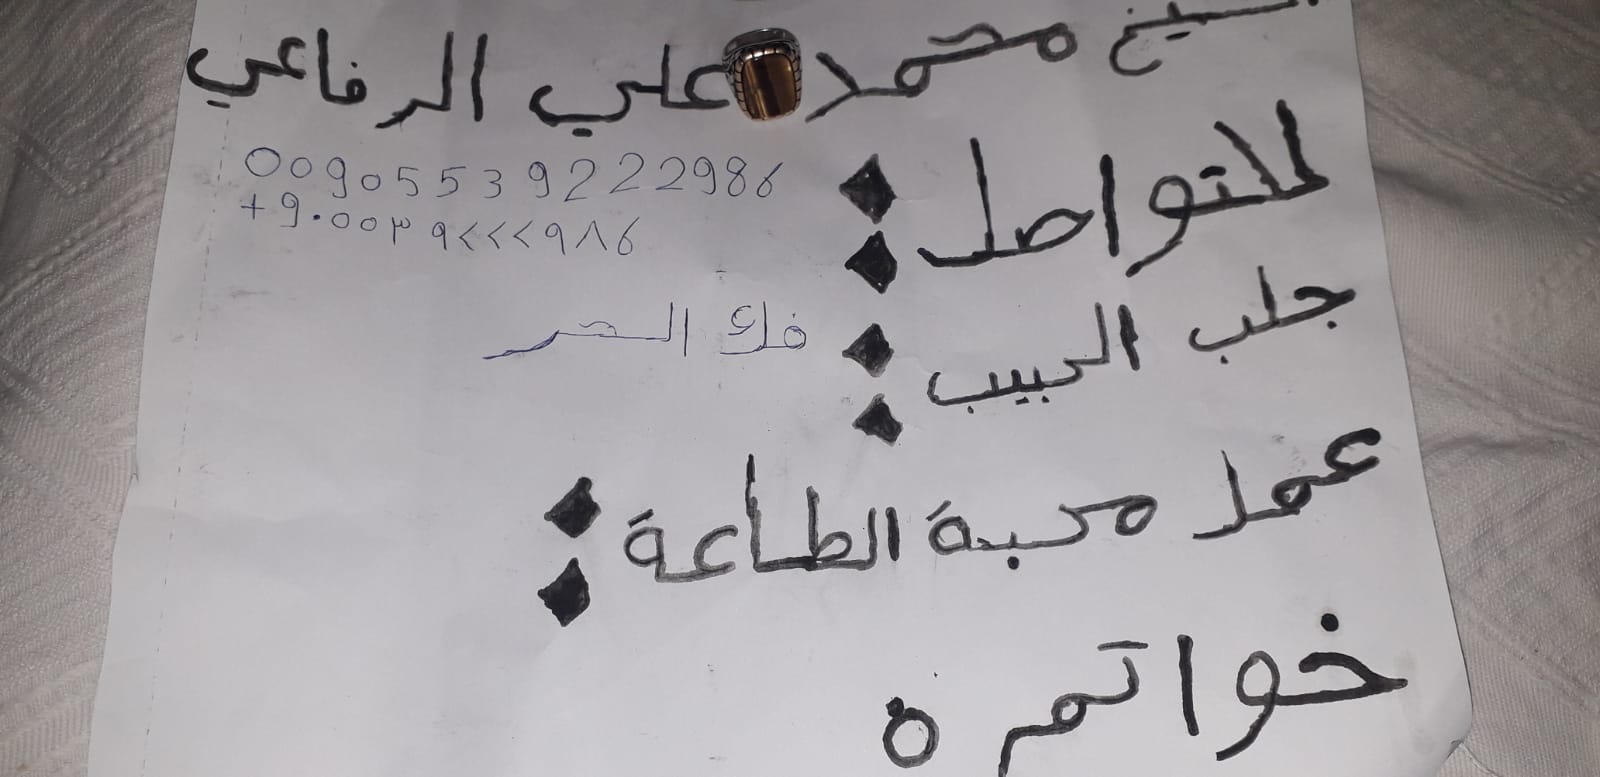 الشيخ محمد علي الرفاعي
للتواصل
00905539222986
+9٠٥٥٣٩٢٢٢٩٨٦
جلب الحبيب
فك السحر
عمل محبة الطاعة
خواتم